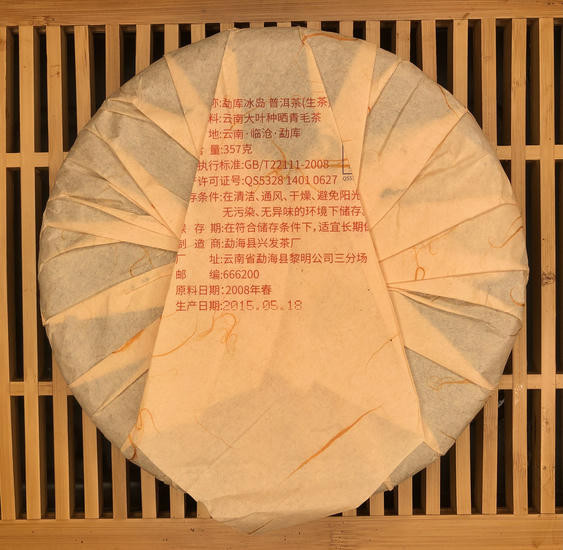 称:勐库冰岛 普洱茶(生茶)
料:云南大叶种晒青毛茶
地:云南·临沧·勐库
含量:357克
执行标准:GB/T22111-2008
许可证号:QS5328 1401 0627
存条件:在清洁、通风、干燥、避免阳光
无污染、无异味的环境下储存
保存期:在符合储存条件下,适宜长期
制造商:勐海县兴发茶厂
厂址:云南省勐海县黎明公司三分场
邮编:666200
原料日期:2008年春
生产日期:2015.05.18
QS